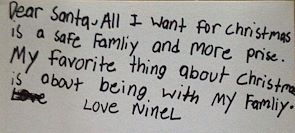 Dear Santa. All I want for christmas
is a safe Famliy and more prise.
My favorite thing about Christma
is about being with my Famliy.
Love NineL